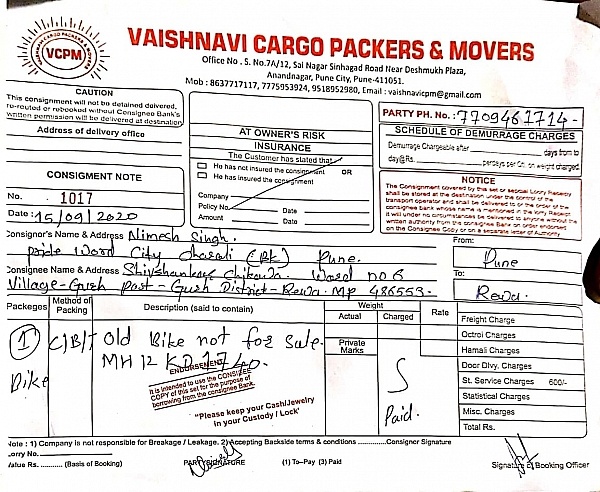 VAISHNAVI CARGO PACKERS & MOVERS
VCPM
Office No. S. No.7A/12, Sai Nagar Sinhagad Road Near Deshmukh Plaza,
Anandnagar, Pune City, Pune-411051.
Mob : 8637717117, 7775953924, 9518952980, Email : vaishnavicpm@gmail.com
CAUTION
This consignment will not be detained delvered,
re-routed or rebooked without Consignee Bank's
written permission will be delivered at destination
Address of delivery office
CONSIGMENT NOTE
No. 1017
Date : 15/09/2020
AT OWNER'S RISK
INSURANCE
The Customer has stated that
He has not insured the consignment OR
He has insured the consignment
Company
Policy No. Date
Amount Date
PARTY PH. No.: 7709461714-
SCHEDULE OF DEMURRAGE CHARGES
Demurrage Chargeable after days from to
day@Rs. perdays per Qtl. on weight charged
NOTICE
The Consignment covered by this set of special Lorry Receipt
shall be stored at the destination under the control of the
transport operator and shall be delivered to or the order of the
consignee Bank whose name is mentioned in the lorry Receipt
it will under no circumstances be delivered to anyone without
the written authority from the consignee Bank on order endorsed
on the Consignee Copy or on a separate letter of Authority
Consignor's Name & Address Nimesh Singh.
pride Word City charoli (BK) Pune.
From: Pune
Consignee Name & Address Shivshankar Word no 6
Village-Gurh post-Gurh District-Rewa. MP 486553.
To: Rewa.
Packeges Method of Packing Description (said to contain) Weight Actual Charged Rate
1 Bike C/B/T Old Bike not for sale.
MH 12 KD 1740.
Private Marks
Paid.
Freight Charge
Octroi Charge
Hamali Charge
Door Dlvy. Charge
St. Service Charges 600/-
Statistical Charge
Misc. Charge
Total Rs.
ENDORSEMENT
It is intended to use the CONSIGEE
COPY of this set for the purpose of
borrowing from the consignee Bank.
"Please keep your Cash/Jewelry
in your Custody / Lock'
Note : 1) Company is not responsible for Breakage / Leakage. 2) Accepting Backside terms & conditions Consigner Signature
Lorry No.
Value Rs. (Basis of Booking) PARTY SIGNATURE (1) To-Pay (3) Paid Signature Booking Officer